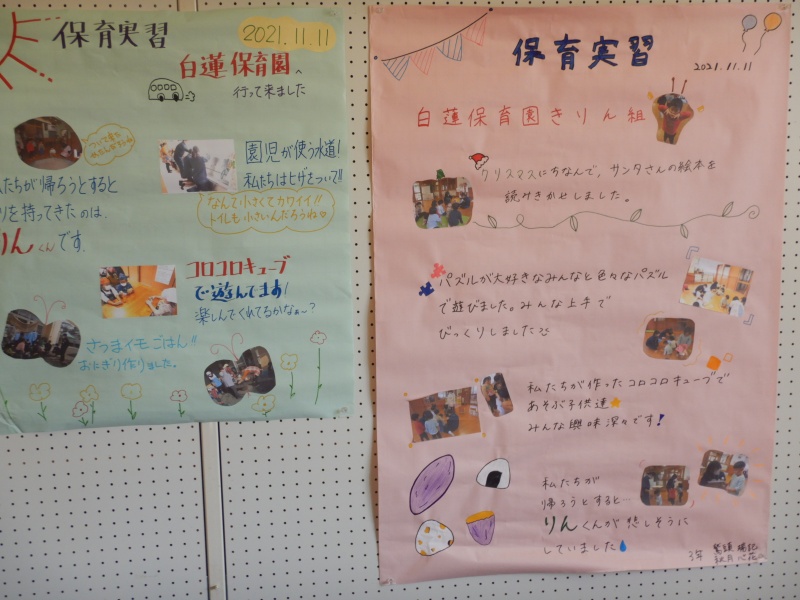 保育実習
2021.11.11
白蓮保育園へ
行って来ました
園児が使う水道!
私たちはヒザをついて!!
なんて小さくてカワイイ!!
トイレも小さいんだろうね
たちが帰ろうとすると
りを持ってきたのは、
りんくんです。
コロコロキューブ
で遊んでます!
楽しんでくれてるかなぁ〜?
さつまイモごはん!!
おにぎり作りました。
保育実習
2021.11.11
白蓮保育園きりん組
クリスマスにちなんで、サンタさんの絵本を
読みきかせしました。
パズルが大好きなみんなと色々なパズル
で遊びました。みんな上手で
びっくりしました
私たちが作ったコロコロキューブで
あそぶ子供達
みんな興味深々です!
私たちが
帰ろうとすると…
りんくんが悲しそうに
していました
3年